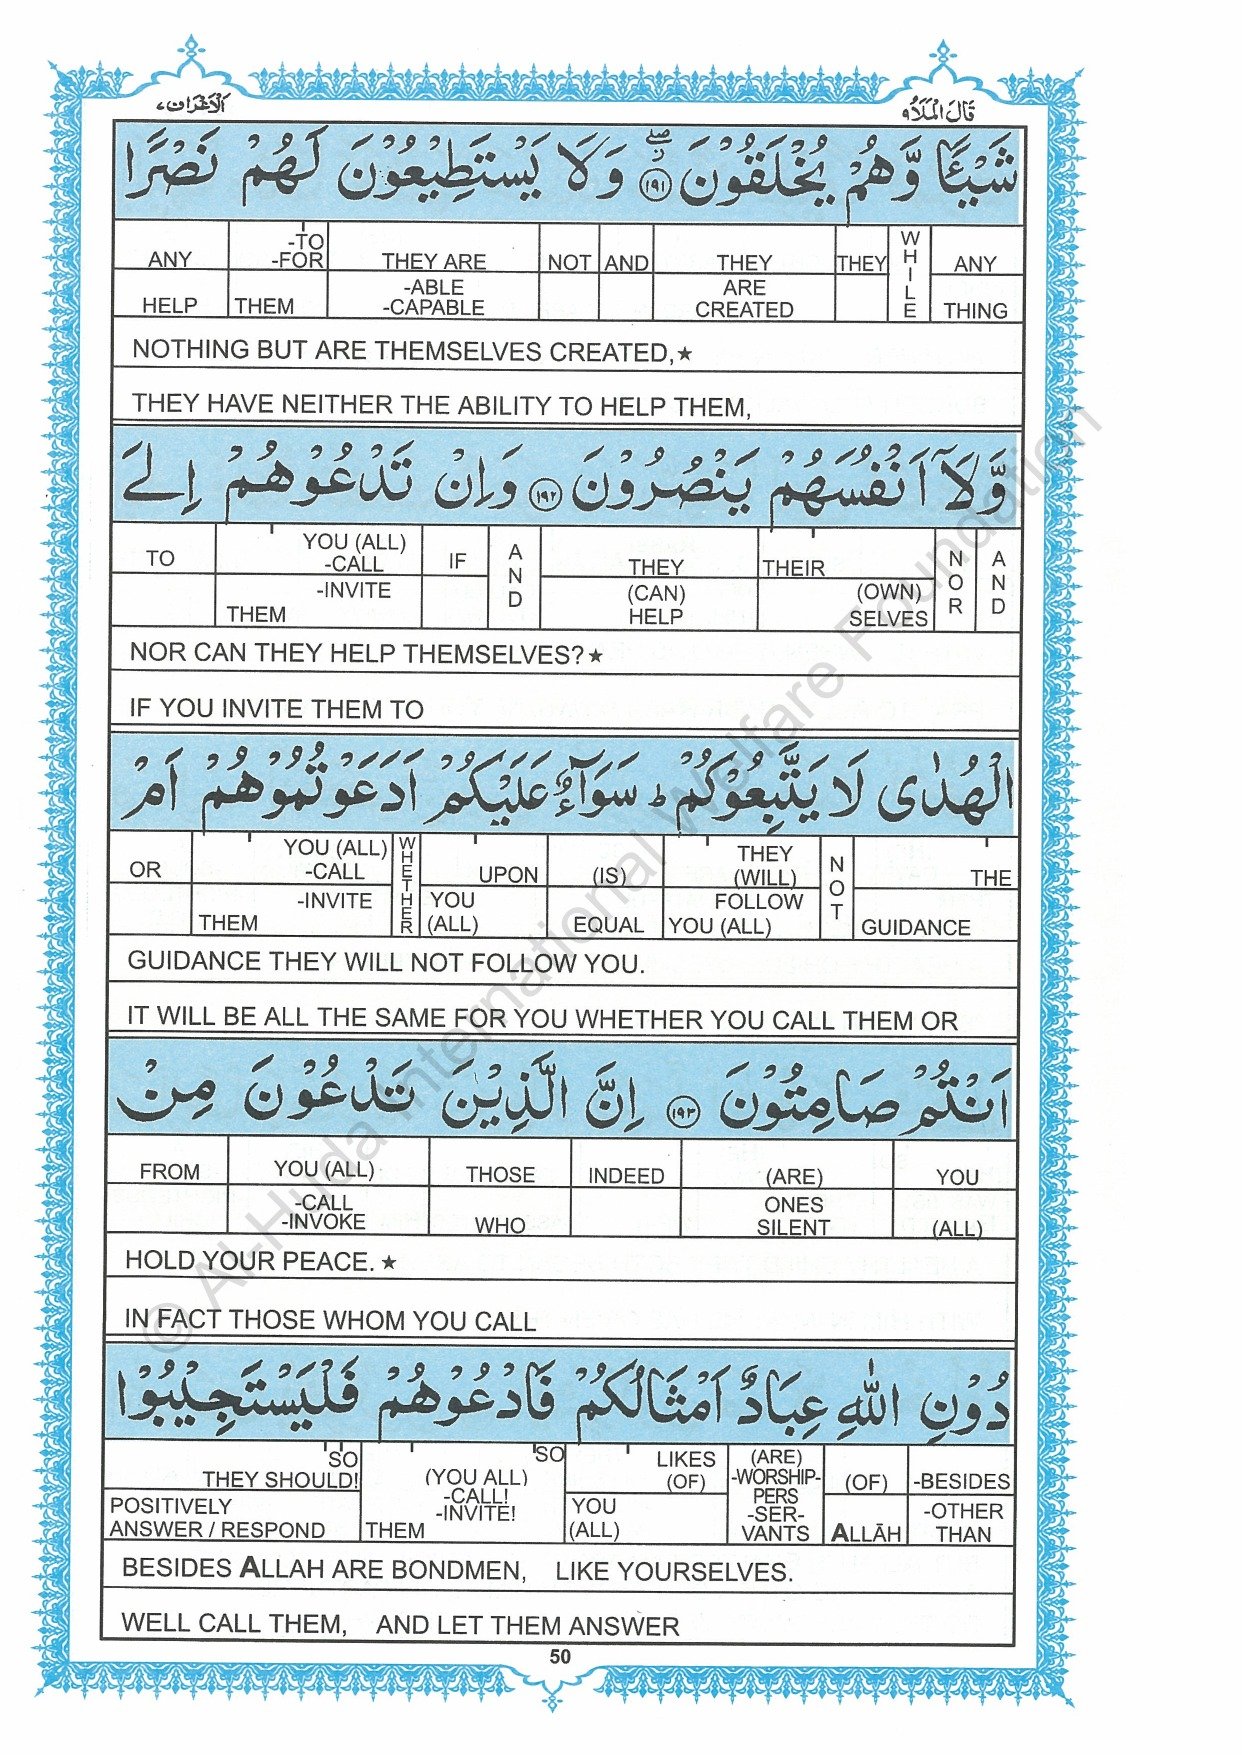 قَالَ الْمَلَاُ ٩
الْاَعْرَاف ٧
شَيْـًٔا وَّهُمْ يُخْلَقُوْنَ ۝١٩١ وَلَا يَسْتَطِيْعُوْنَ لَهُمْ نَصْرًا
ANY -TO THEY ARE NOT AND THEY THEY WHILE ANY
HELP -FOR THEM -ABLE -CAPABLE ARE CREATED THING
NOTHING BUT ARE THEMSELVES CREATED,★
THEY HAVE NEITHER THE ABILITY TO HELP THEM,
وَّلَآ اَنْفُسَهُمْ يَنْصُرُوْنَ ۝١٩٢ وَاِنْ تَدْعُوْهُمْ اِلَى
TO YOU (ALL) -CALL IF AND THEY THEIR NOR AND
-INVITE THEM (CAN) HELP (OWN) SELVES
NOR CAN THEY HELP THEMSELVES?★
IF YOU INVITE THEM TO
الْهُدٰى لَا يَتَّبِعُوْكُمْ ؕ سَوَآءٌ عَلَيْكُمْ اَدَعَوْتُمُوْهُمْ اَمْ
OR YOU (ALL) -CALL WHETHER UPON (IS) THEY (WILL) NOT THE
-INVITE THEM YOU (ALL) EQUAL FOLLOW YOU (ALL) GUIDANCE
GUIDANCE THEY WILL NOT FOLLOW YOU.
IT WILL BE ALL THE SAME FOR YOU WHETHER YOU CALL THEM OR
اَنْتُمْ صَامِتُوْنَ ۝١٩٣ اِنَّ الَّذِيْنَ تَدْعُوْنَ مِنْ
FROM YOU (ALL) THOSE INDEED (ARE) YOU
-CALL -INVOKE WHO ONES SILENT (ALL)
HOLD YOUR PEACE.★
IN FACT THOSE WHOM YOU CALL
دُوْنِ اللّٰهِ عِبَادٌ اَمْثَالُكُمْ فَادْعُوْهُمْ فَلْيَسْتَجِيْبُوْا
SO THEY SHOULD! SO (YOU ALL) -CALL! -INVITE! LIKES (OF) (ARE) -WORSHIP- PERS (OF) -BESIDES
POSITIVELY ANSWER / RESPOND THEM YOU (ALL) -SER- VANTS ALLĀH -OTHER THAN
BESIDES ALLAH ARE BONDMEN, LIKE YOURSELVES.
WELL CALL THEM, AND LET THEM ANSWER
50
© Al-Huda International Welfare Foundation